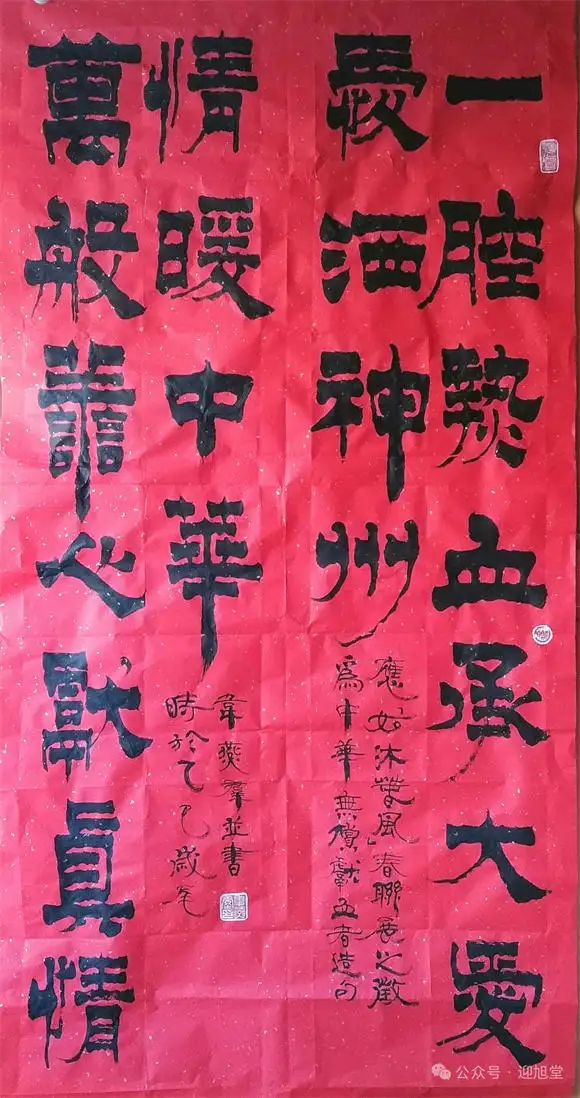 一腔熱血承大愛
愛洒神州
應「如沐春風」春聯展之徵
爲中華無償獻血者造句
萬般譱心獻真情
情暖中華
韋羣並書
時於乙巳歲
公众号 · 迎旭堂